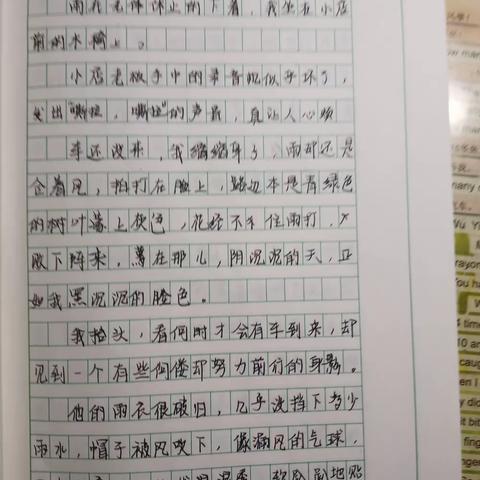 雨在无休休止的下着，我坐在小店
前的木椅上。
小店老板手中的录音机似乎坏了，
发出"嘶拉，嘶拉"的声音，真让人心烦
车还没来，我缩缩身子，雨却还是
会着风，拍打在脸上，路边本是青绿色
的树叶蒙上灰色，花经不住雨打，
败下阵来，蔫在那儿，阴沉沉的天，正
如我黑沉沉的脸色。
我抬头，看何时才会有车到来，却
见到一个有些佝偻却努力前行的身影。
他的雨衣很破旧，几乎没挡下多少
雨水，帽子被风吹下，像漏风的气球，
地贴
many
Wu Yi
rayon
You ha
time
10 ar
caug
en I
y did
it bit
fing